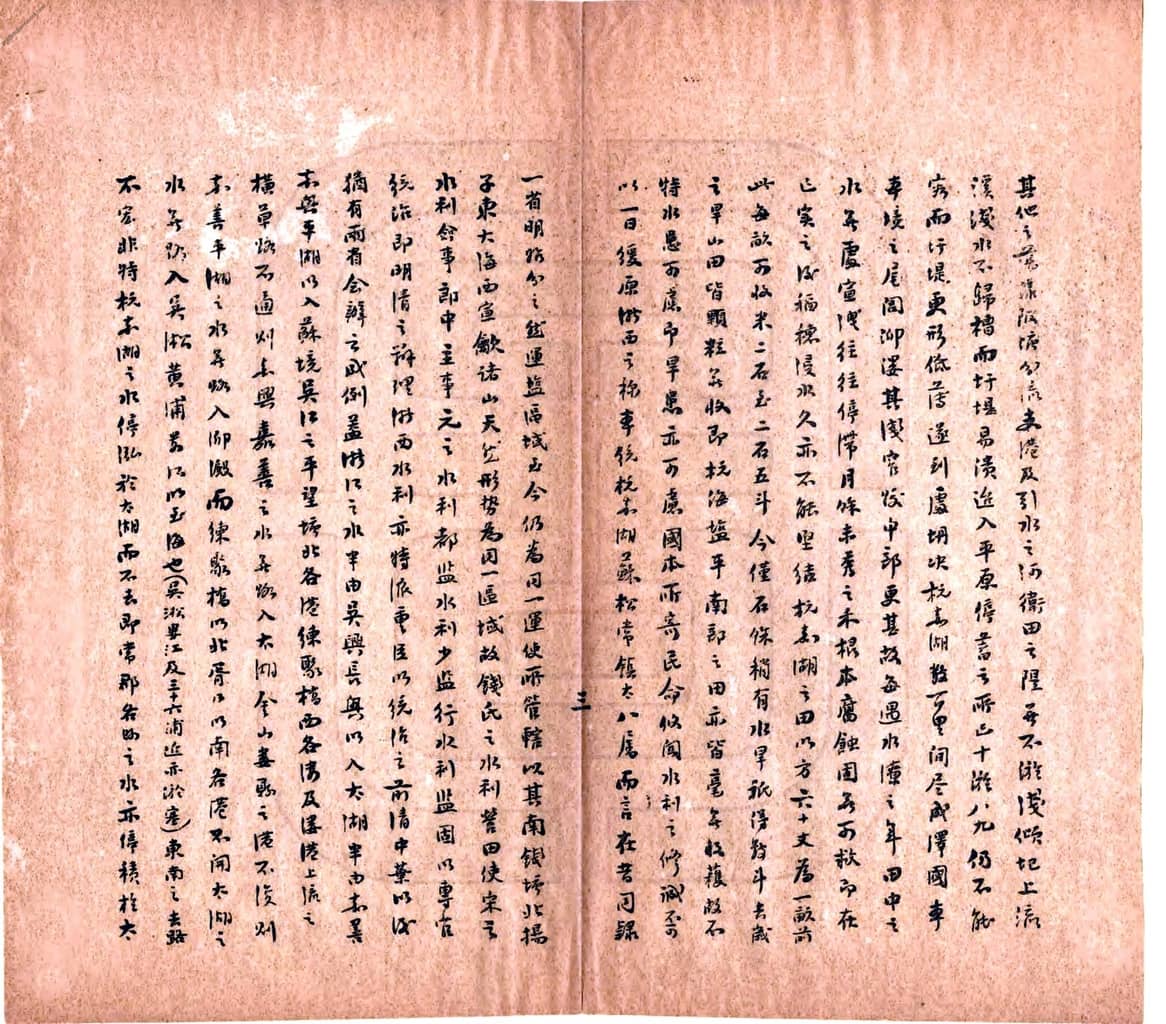 其他之蕩漾陂塘分流支港及引水之河衛田之隄無不淤淺傾圮上流
溪淺水不歸槽而圩堤易潰迨入平原停蓄之所已十淤八九仍不能
容而圩堤更形低薄遂到處坍決杭嘉湖數百里間尽成澤國本
車境之尾閭泖漊其淺窄較中部更甚故每遇水潦之年田中之
水無處宣洩往往停滯月餘未秀之禾根本腐蝕固無可救即在
已實之後稻穗浸水久亦不能堅結杭嘉湖之田以方六十丈為一畝前
此每畝可收米二石至二石五斗今僅石餘稍有水旱祇得數斗去歲
之旱山田皆顆粒無收即杭海鹽平南部之田亦皆毫無收穫故不
特水患可慮而旱患亦可慮國本所寄民命攸關水利之修誠不可
以一日緩原浙西之稱本統杭嘉湖蘇松常鎮太八屬而言在昔同隸
三
一省明始分之然運鹽區域至今仍為同一運使所管轄以其南錢塘北揚
子東大海西宣歙諸山天然形勢為同一區域故錢氏之水利營田使宋之
水利僉事郎中主事元之水利都監水利少監行水利監固以專官
統治即明清之辦理浙西水利亦特派重臣以統治之前清中葉以後
猶有兩省会辦之成例蓋浙江之水半由吳興長興以入太湖半由嘉善
嘉興平湖以入蘇境吳江之平望塘北各港練聚橋西各漊及漊港上流之
橫草路不通則嘉興嘉善之水無路入太湖金山婁縣之港不浚則
嘉善平湖之水無路入泖澱而練聚橋以北胥口以南各港不開太湖之
水無路入吳淞黃浦婁江以至海也（吳淞婁江及三十六浦近亦淤塞）東南之去路
不宏非特杭嘉湖之水停泓於太湖而不去即常郡各邑之水亦停積於太